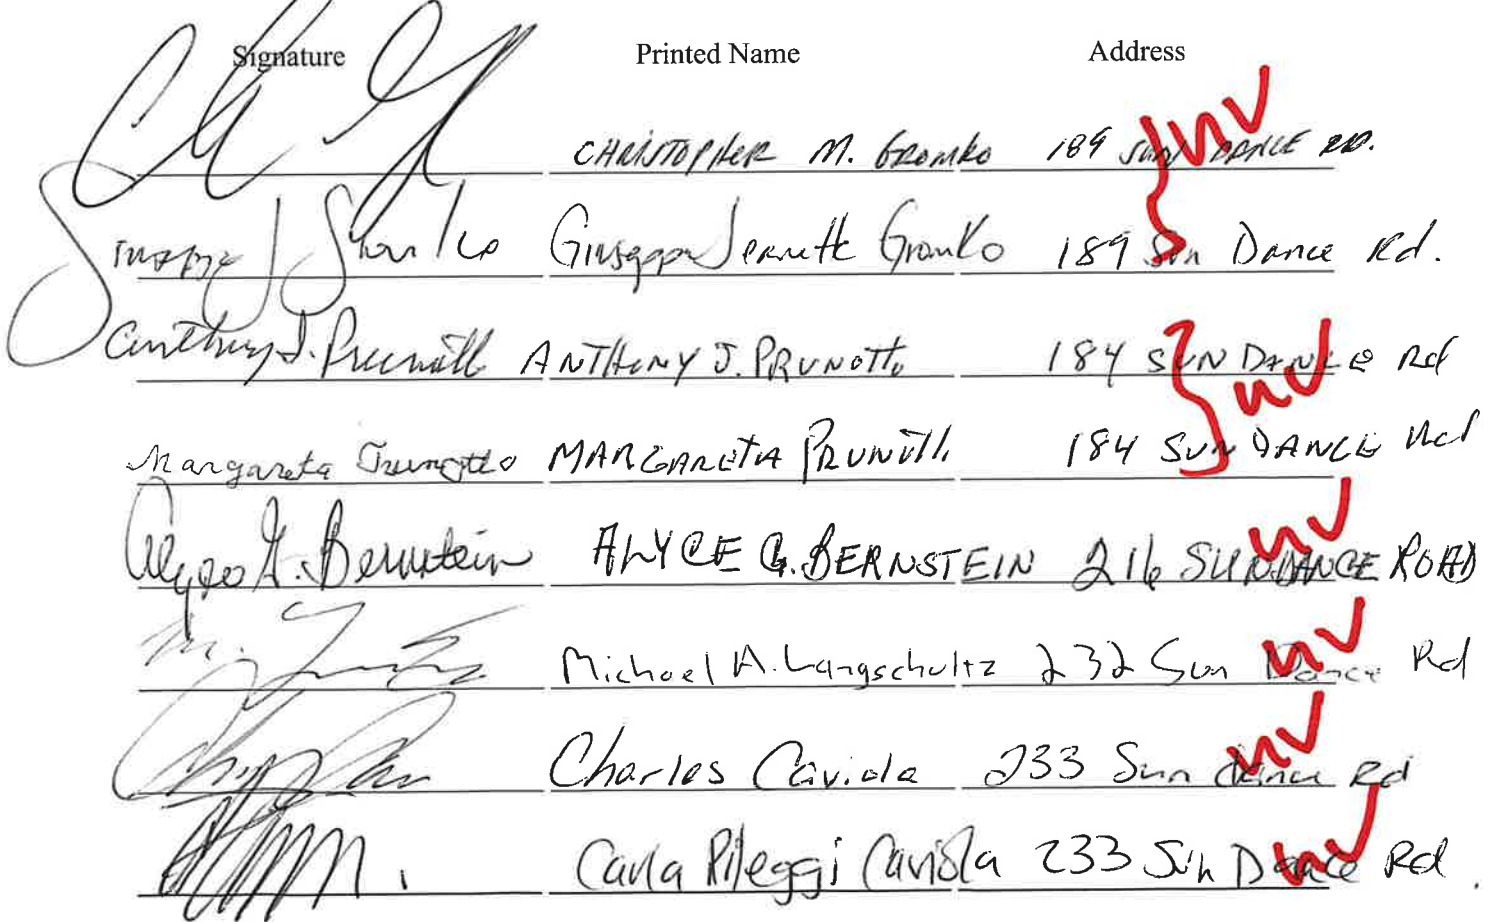 Signature Printed Name Address
CHRISTOPHER M. GROMKO 189 SUN DANCE RD.
nv
Jeanette Gromko 189 Sun Dance Rd.
Anthony J. Prunotto ANTHONY J. PRUNOTTO 184 SUN DANCE Rd
nv
Margareta Prunotto MARGARETA PRUNOTTO 184 SUN DANCE Rd
Alyce G. Bernstein ALYCE G. BERNSTEIN 216 SUNDANCE ROAD
nv
Michael A. Langschultz 232 Sun Dance Rd
nv
Charles Caviola 233 Sun dance Rd
nv
Carla Pileggi Caviola 233 Sun Dance Rd.
nv